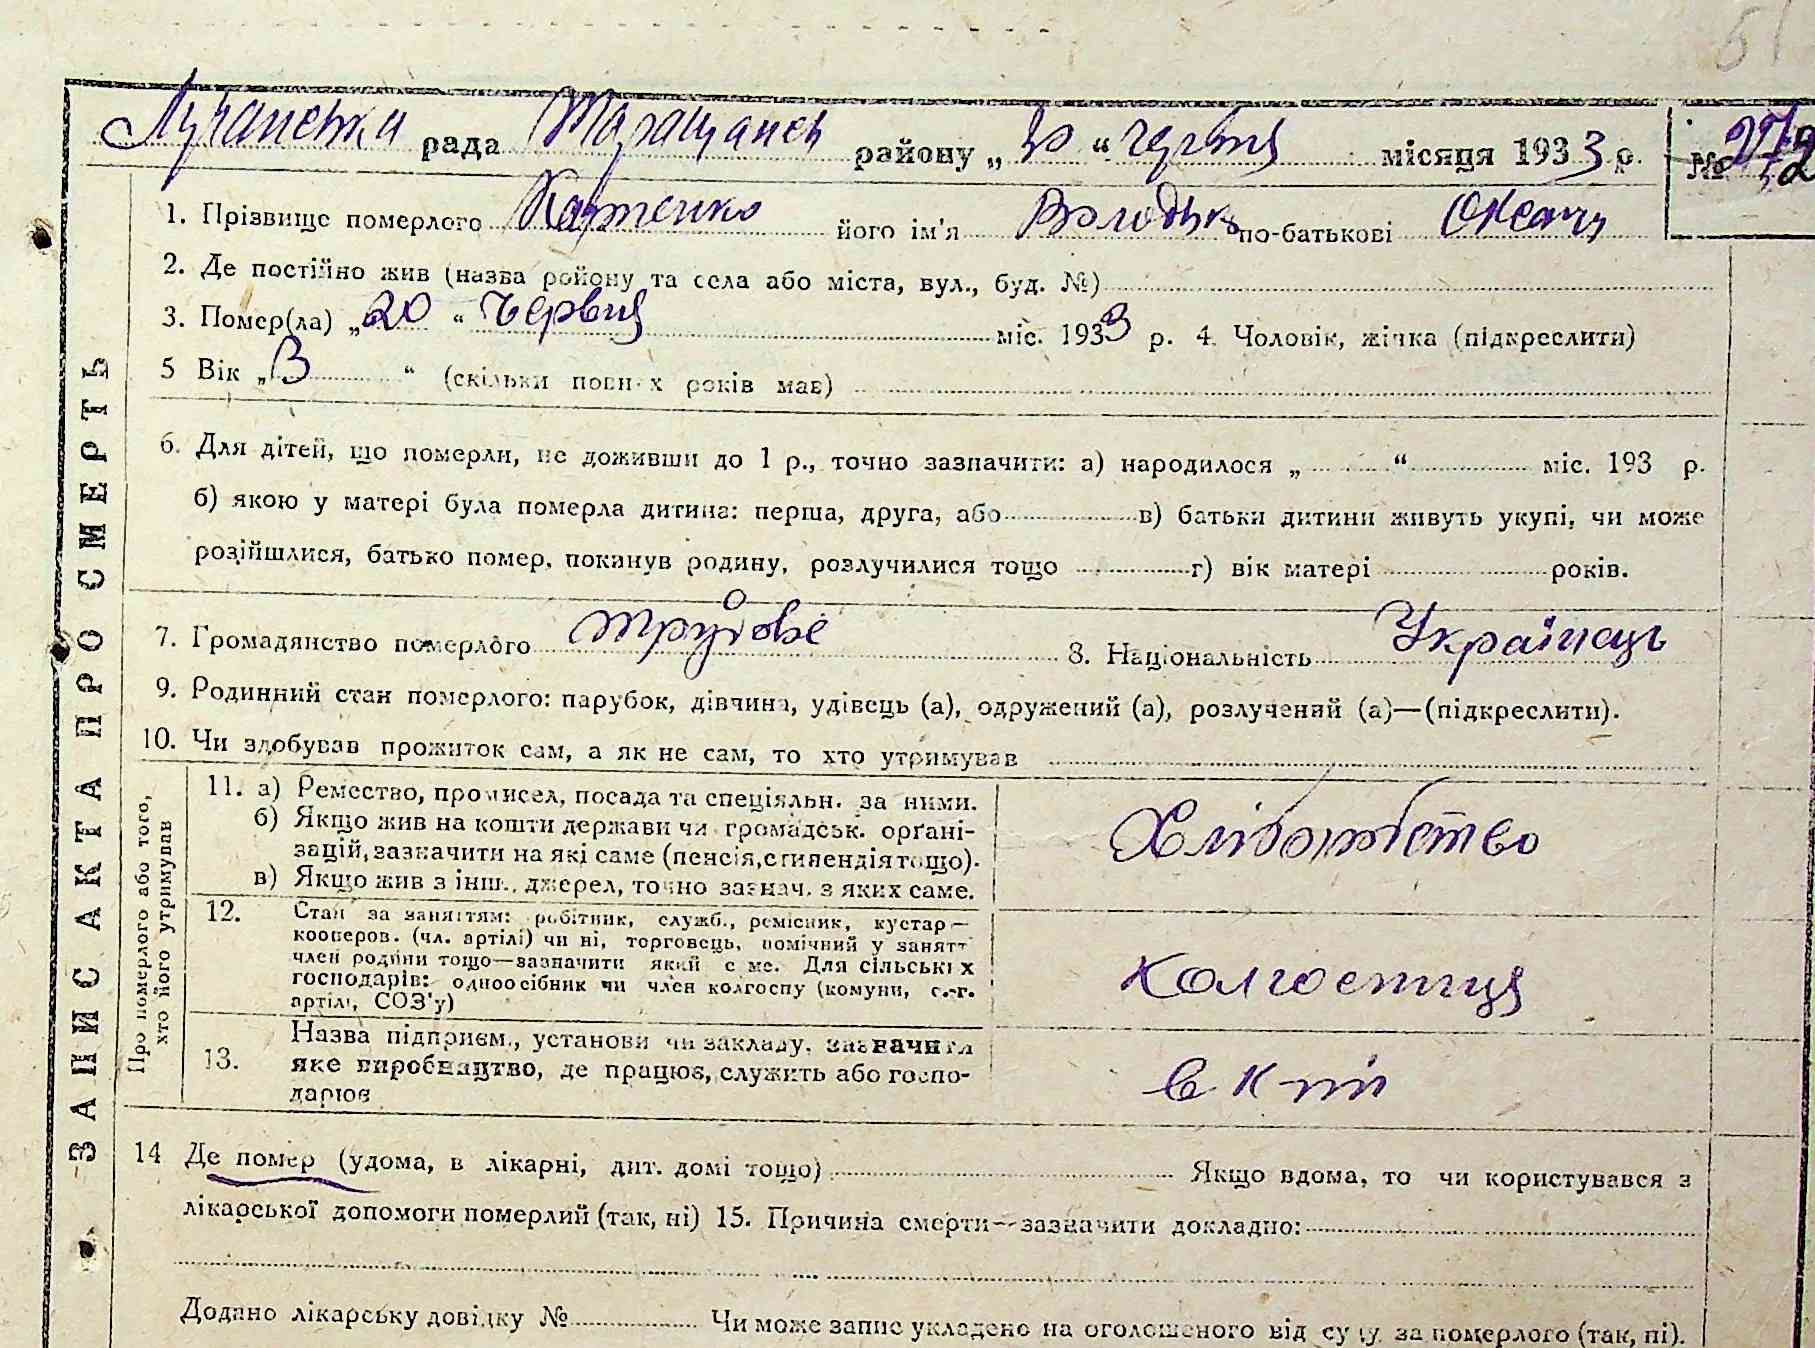 51
Лучанська рада Таращанськ району „ 20 “ червня місяця 1933 р. №
1. Прізвище померлого Картенко його ім'я Володько по-батькові
2. Де постійно жив (назва району та села або міста, вул., буд. №)
3. Помер(ла) „ 20 “ червня міс. 1933 р. 4. Чоловік, жінка (підкреслити)
5 Вік „ 3 “ (скільки повних років має)
6. Для дітей, що померли, не доживши до 1 р., точно зазначити: а) народилося „ “ міс. 193 р.
б) якою у матері була померла дитина: перша, друга, або в) батьки дитини живуть укупі, чи може
розійшлися, батько помер, покинув родину, розлучилися тощо г) вік матері років.
7. Громадянство померлого трудове 8. Національність Українець
9. Родинний стан померлого: парубок, дівчина, удівець (а), одружений (а), розлучений (а)—(підкреслити).
10. Чи здобував прожиток сам, а як не сам, то хто утримував
11. а) Ремество, промисел, посада та спеціяльн. за ними.
б) Якщо жив на кошти держави чи громадськ. орґані-
зацій, зазначити на які саме (пенсія, стипендія тощо).
в) Якщо жив з інш., джерел, точно зазнач. з яких саме.
Хліборобство
12. Стан за заняттям: робітник, служб., ремісник, кустар—
кооперов. (чл. артілі) чи ні, торговець, помічний у занятт
член родини тощо—зазначити який с ме. Для сільськіх
господарів: одноосібник чи член колгоспу (комуни, с.-г.
артілі, СОЗ'у)
колгоспиця
13. Назва підприєм., установи чи закладу, зазначити
яке виробництво, де працює, служить або госпо-
дарює
в к-пі
Про померлого або того,
хто його утримував
ЗАПИС АКТА ПРО СМЕРТЬ
14 Де помер (удома, в лікарні, дит. домі тощо) Якщо вдома, то чи користувався з
лікарської допомоги померлий (так, ні) 15. Причина смерти—зазначити докладно:
Додано лікарську довідку № Чи може запис укладено на оголошеного від суду за померлого (так, ні).